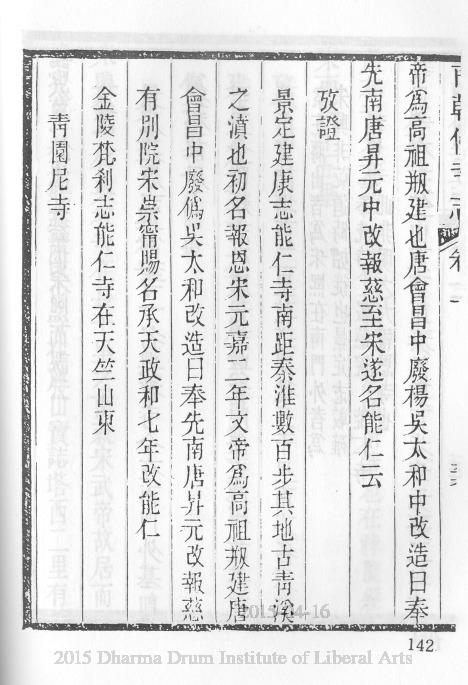 南朝佛寺志 卷一
帝爲高祖剏建也唐會昌中廢楊吳太和中改造曰奉
先南唐昇元中改報慈至宋遂名能仁云
攷證
景定建康志能仁寺南距秦淮數百步其地古靑溪
之濆也初名報恩宋元嘉二年文帝爲高祖剏建唐
會昌中廢僞吳太和改造曰奉先南唐昇元改報慈
有別院宋崇甯賜名承天政和七年改能仁
金陵梵刹志能仁寺在天竺山東
靑園尼寺
142
2015-04-16
2015 Dharma Drum Institute of Liberal Arts